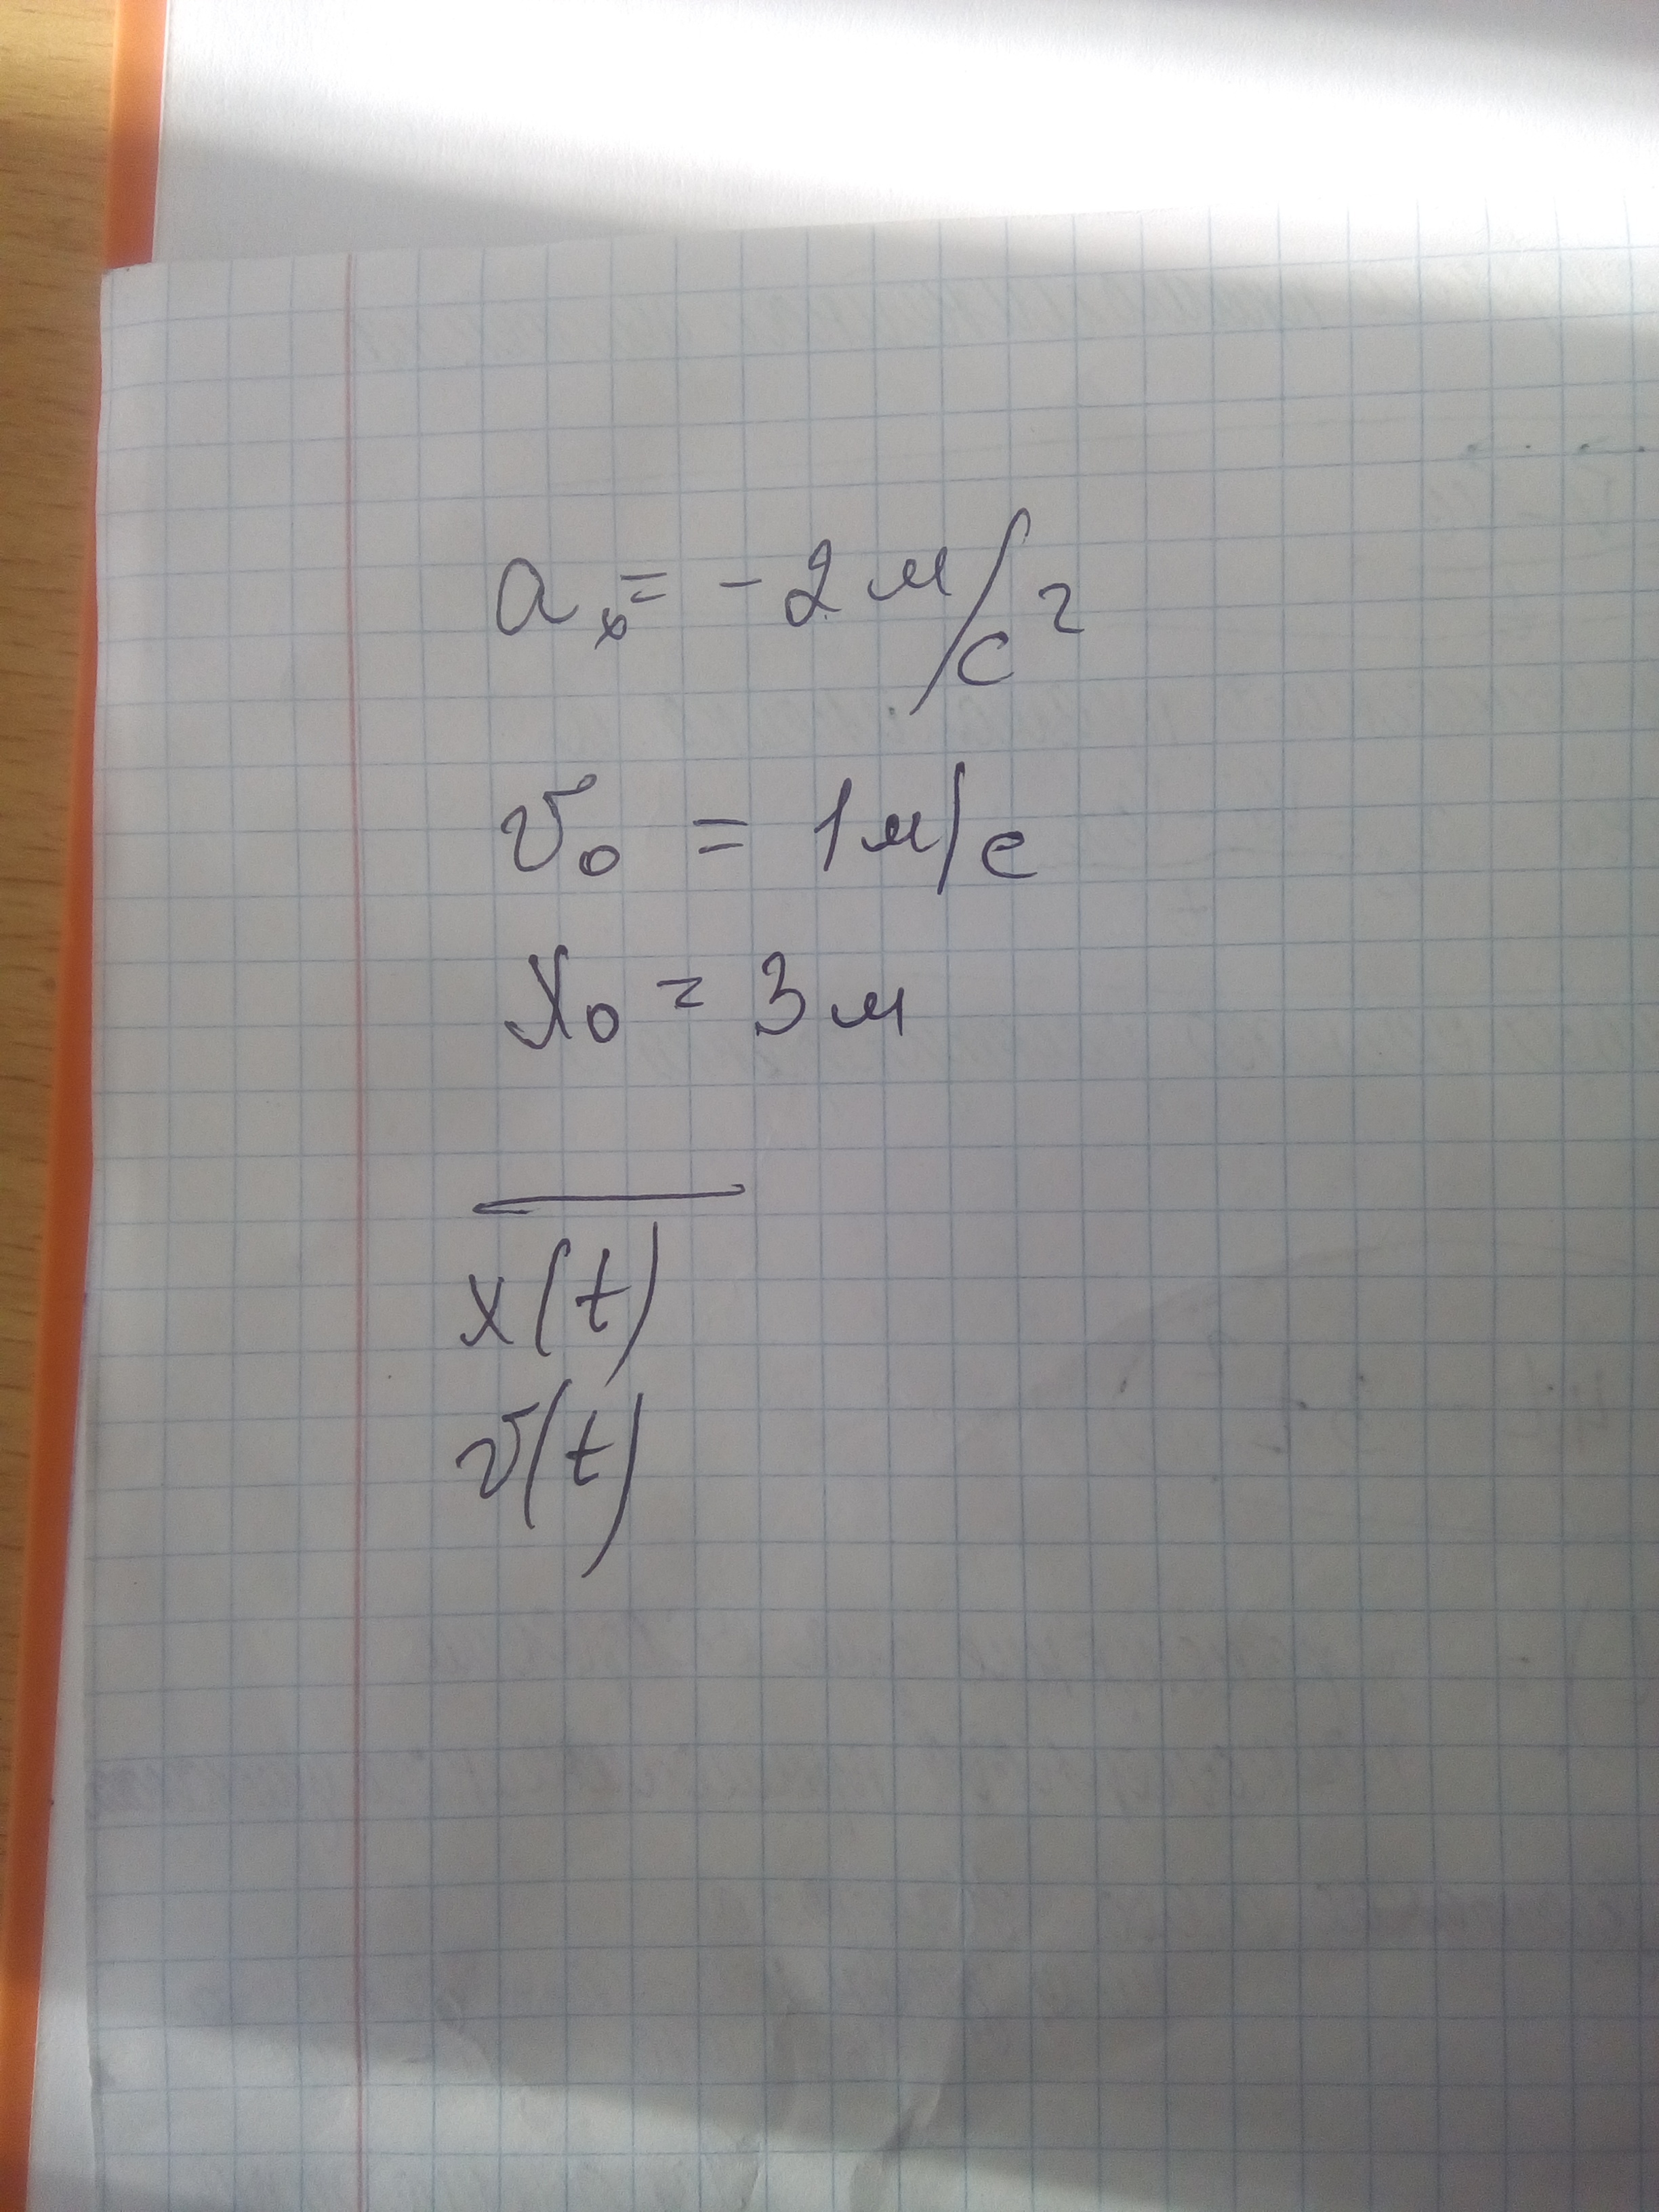 aₓ = -2 м/с²
v₀ = 1 м/с
x₀ = 3 м
x(t)
v(t)